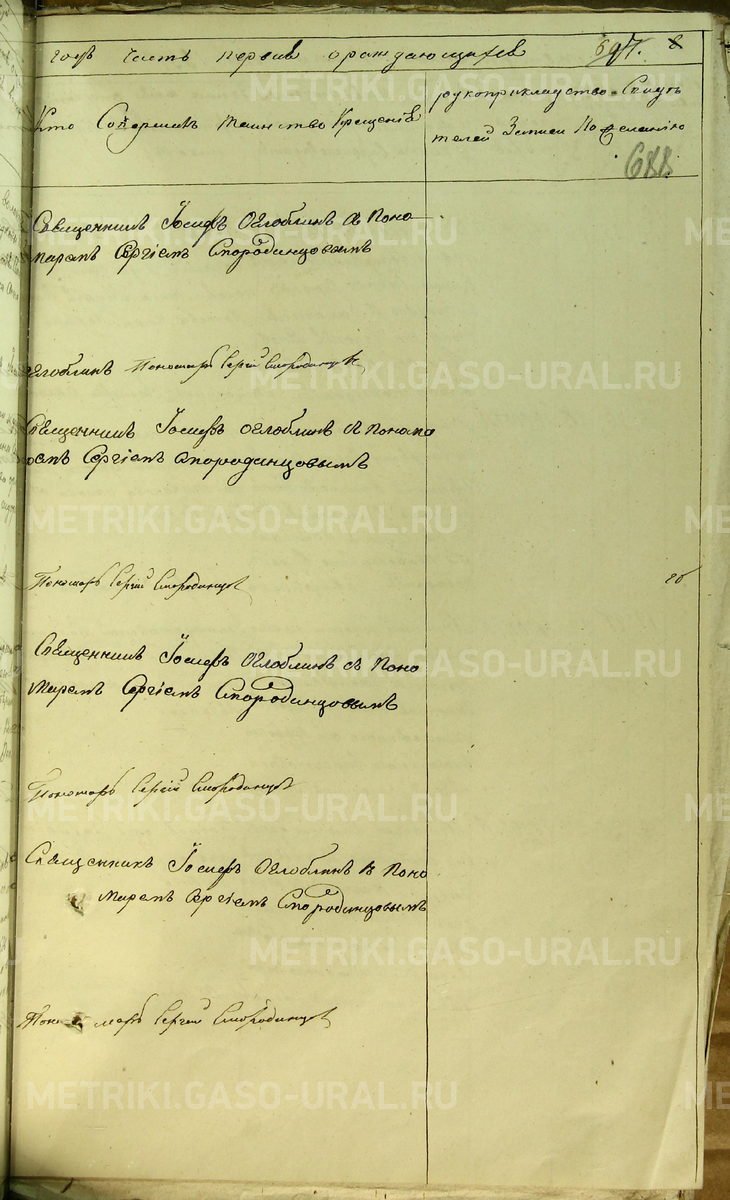 годъ часть первая о раждающихся 697. 8
Кто Совершилъ таинство Крещенія
рукоприкладство Свидѣ
телей Записи По желанію
688
Священникъ Іосифъ Оглоблинъ съ Поно
маремъ Сергіемъ Смородинцовымъ
Оглоблинъ Пономарь Сергій Смородинцовъ
Священникъ Іосифъ Оглоблинъ съ Понома
ремъ Сергіемъ Смородинцовымъ
Пономарь Сергій Смородинцовъ
Священникъ Іосифъ Оглоблинъ съ Поно
маремъ Сергіемъ Смородинцовымъ
Пономарь Сергій Смородинцовъ
Священникъ Іосифъ Оглоблинъ съ Поно
маремъ Сергіемъ Смородинцовымъ
Пономарь Сергій Смородинцовъ
METRIKI.GASO-URAL.RU